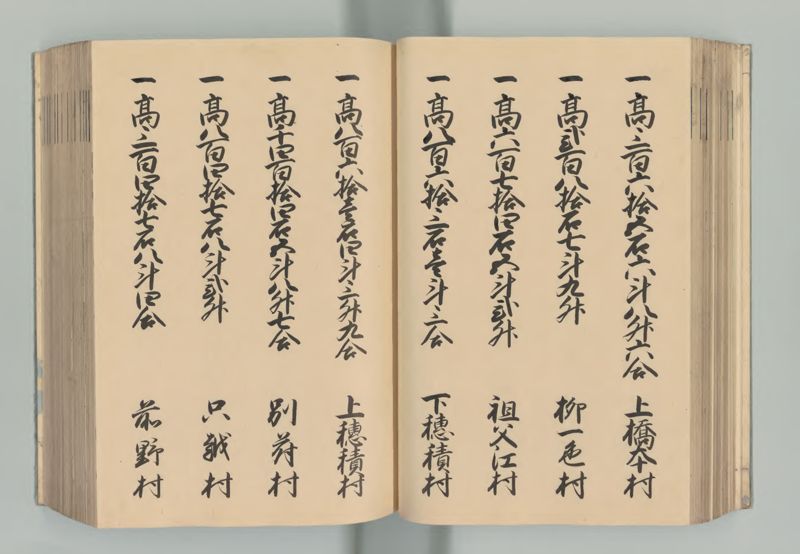 一 高三百六拾五石六斗八升六合 上橋本村
一 高弐百八拾石七斗九升 柳一色村
一 高六百七拾四石五斗弐升 祖父江村
一 高八百六拾三石壱斗三合 下穂積村
一 高八百六拾壱石四斗三升九合 上穂積村
一 高千四百拾四石五斗八升七合 別府村
一 高八百四拾七石八斗弐升 只越村
一 高三百四拾七石八斗四合 前野村